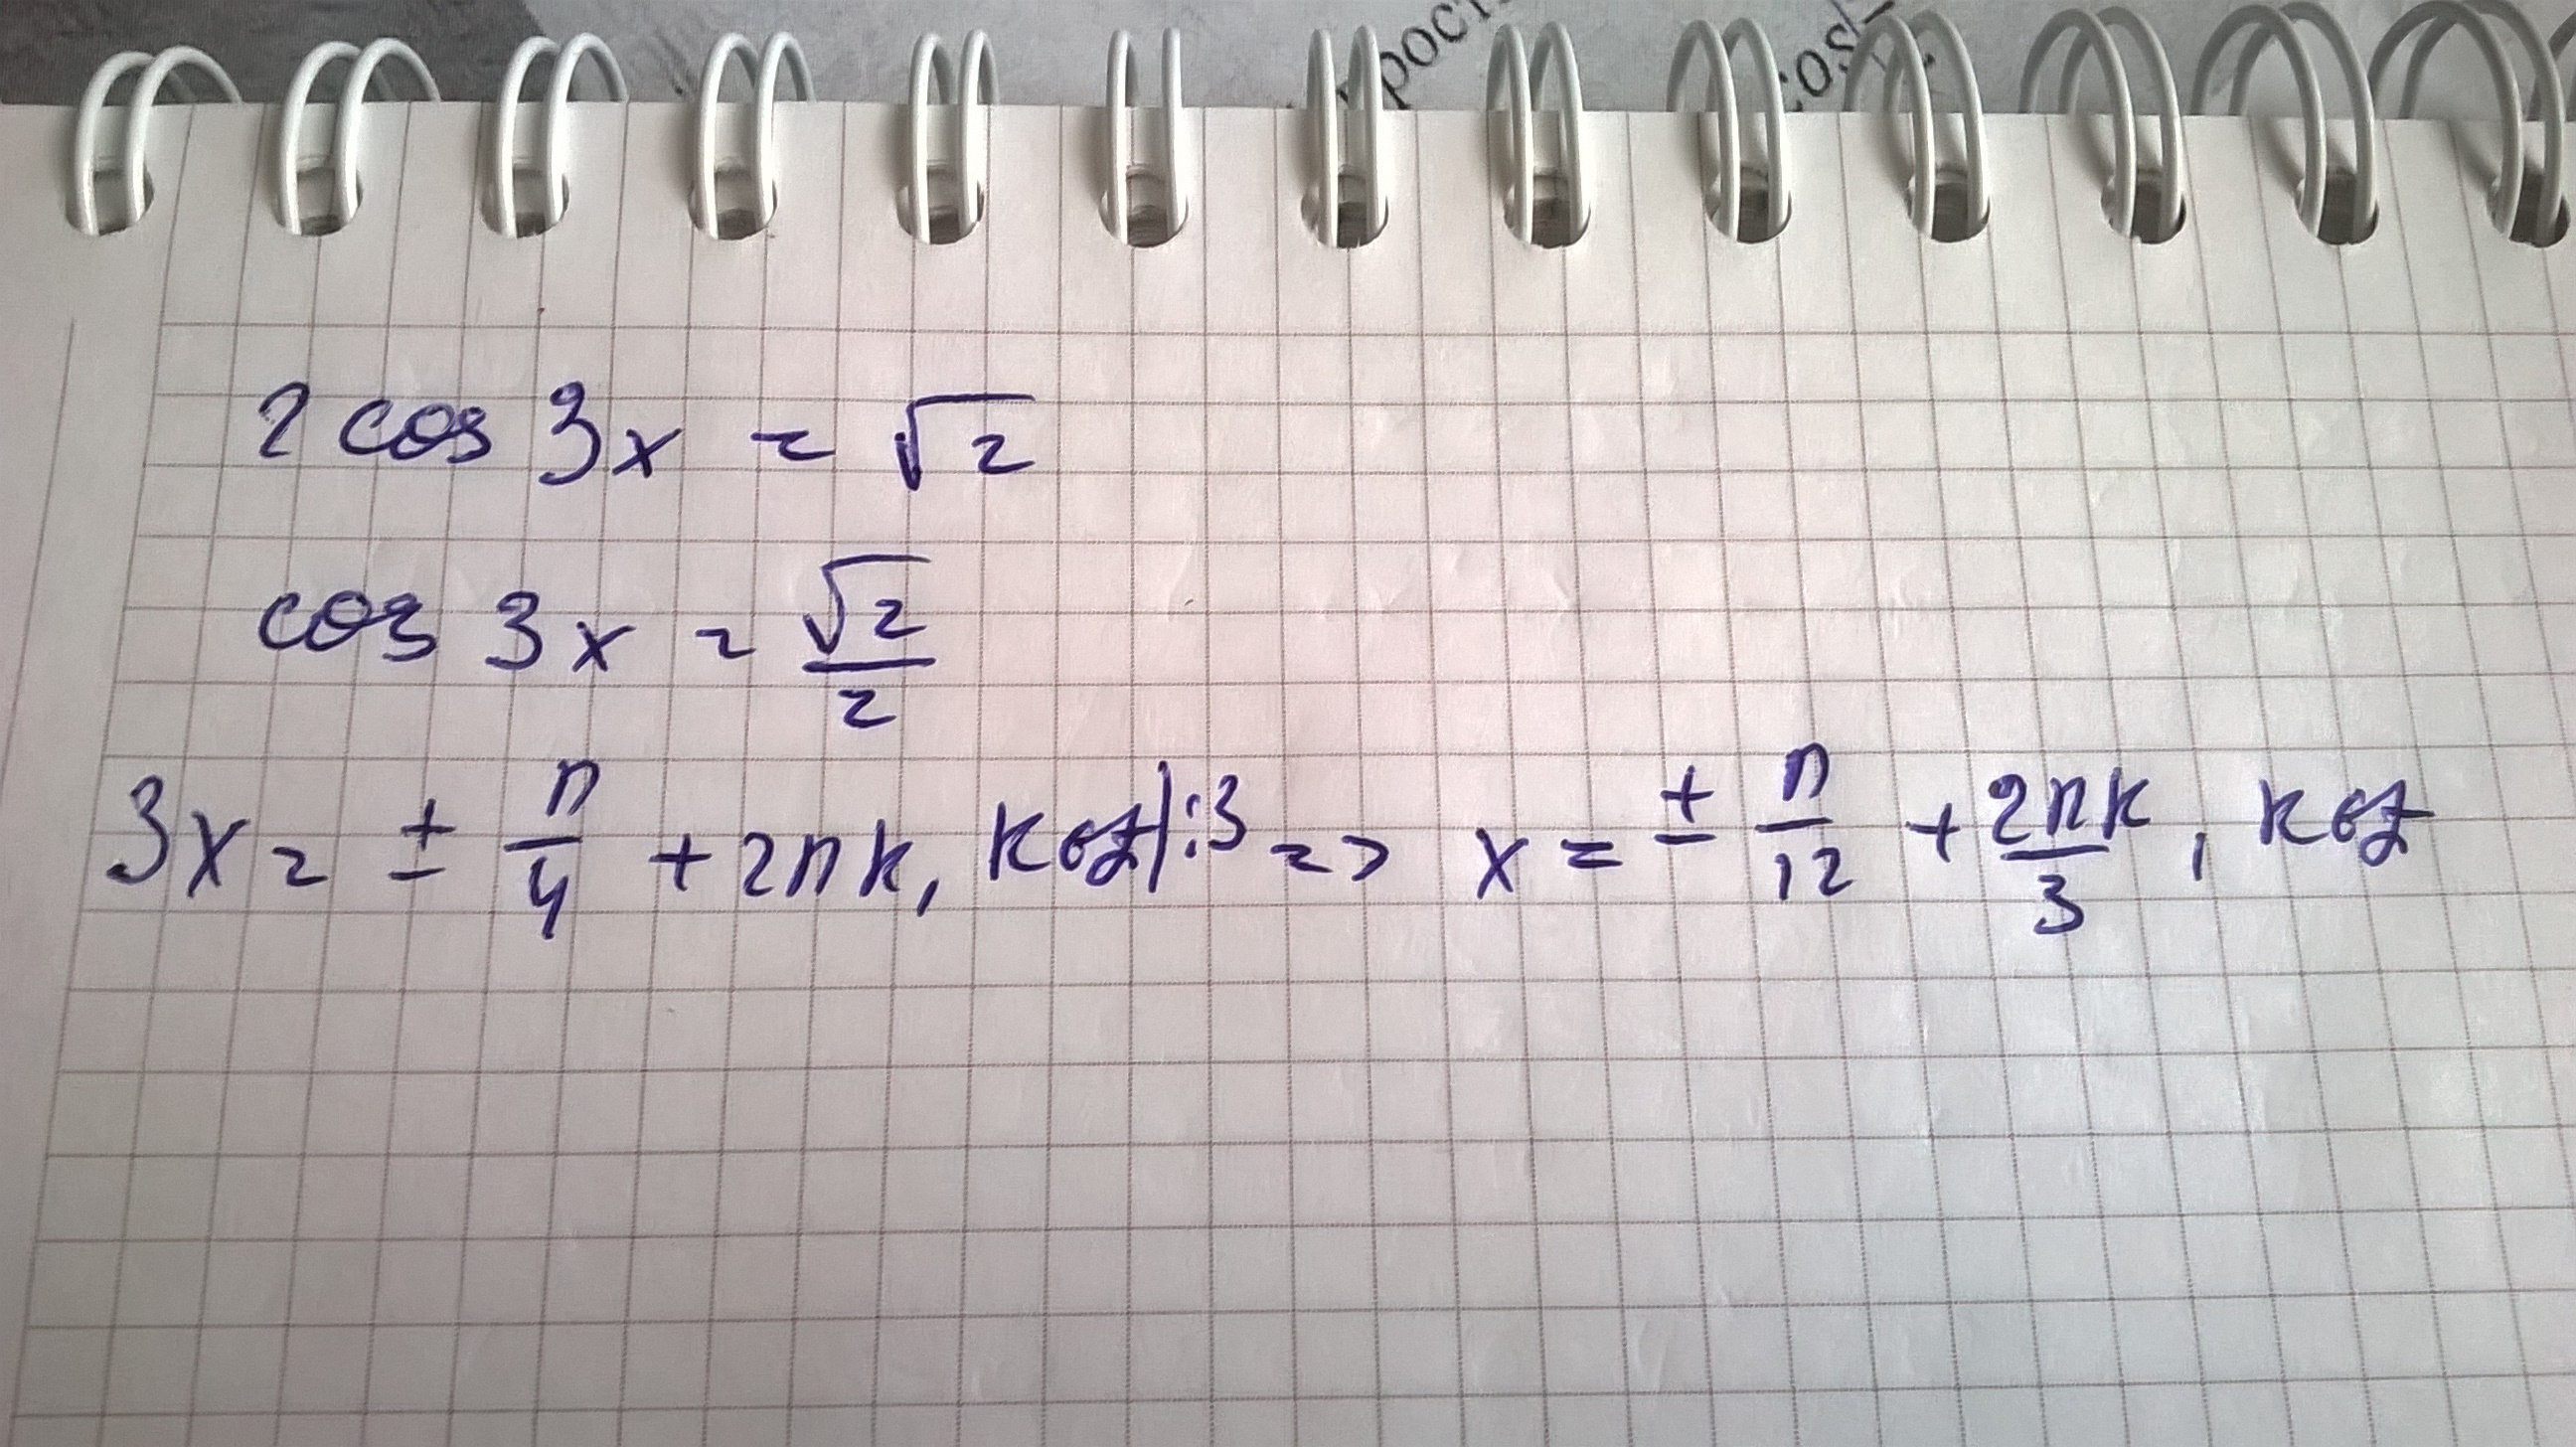 рост
cos
2 cos 3x = √2
cos 3x = √2/2
3x = ± π/4 + 2πk, k∈Z |:3 => x = ± π/12 + 2πk/3, k∈Z